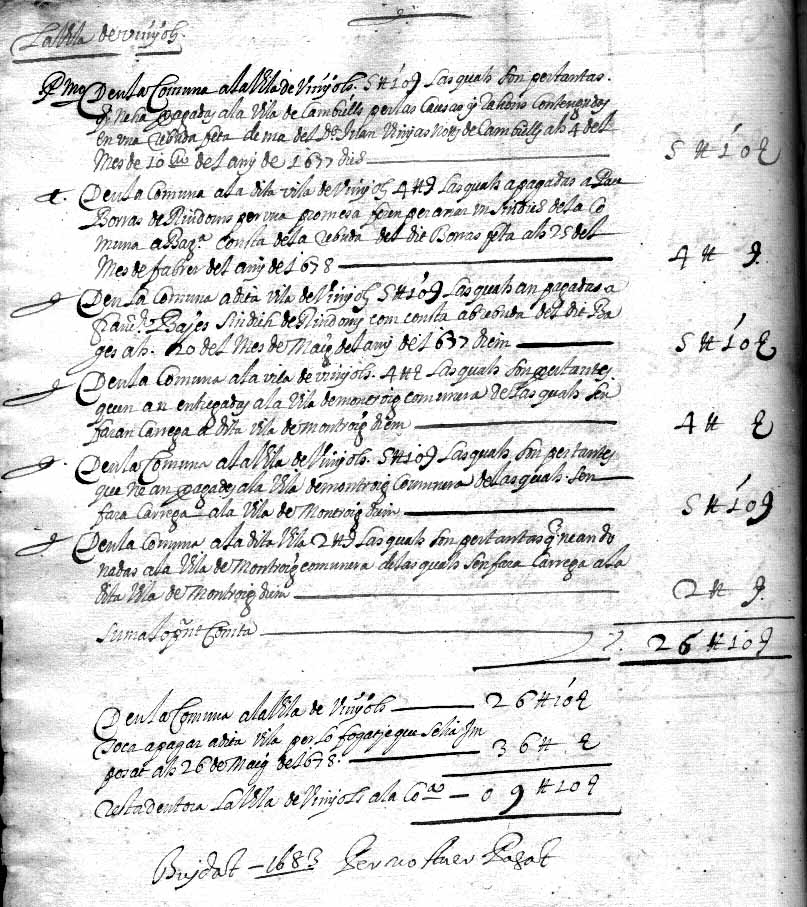 La Vila de Vinÿols.
P.mo Deu la Comuna a la Vila de Vinyols. 5 ₶ 10 ꝯ Las quals son per tantas.
ne ha pagadas a la Vila de Cambrils per las Causas y Rahons Contengudas
en una rebuda feta de ma del Dr Vinyas Notj de Cambrils als 4 del
Mes de 10 del any de 1677 dies — 5 ₶ 10 ꝯ
Deu la Comuna a la dita vila de Vinyols 4 ₶ ꝯ Las quals a pagadas a Pau
Borras de Riudoms per una promesa feren per anar un Sindich de la Co
muna a consta de la rebuda del dit Borras feta als 25 del
Mes de fabrer del any de 1678 — 4 ₶ ꝯ.
Deu la Comuna a dita vila de Vinyols 5 ₶ 10 ꝯ Las quals an pagadas a
Pajes Sindich de Riudoms com consta ab rebuda del dit Pa
ges als. 20 del Mes de Maig del any de 1677 diem — 5 ₶ 10 ꝯ
Deu la Comuna a la vila de vinyols. 4 ₶ ꝯ Las quals son per tantes
queen an entregadas a la Vila de montroig comunera de las quals sen
faran Carrega a dita vila de Montroig diem — 4 ₶ ꝯ
Deu la Comuna a la Vila de Vinyols. 5 ₶ 10 ꝯ Las quals son per tantes
que ne an pagades a la Vila de montroig Comunera de las quals sen
fara Carrega a la Vila de Montroig dium — 5 ₶ 10 ꝯ
Deu la Comuna a la dita Vila 2 ₶ ꝯ Las quals son per tantas q ne an do
nadas a la Vila de Montroig comunera de las quals sen fara Carrega a la
dita Vila de Montroig dium — 2 ₶ ꝯ.
Suma lo pñt Conta — 26 ₶ 10 ꝯ
Deu la Comuna a la Vila de Vinyols — 26 ₶ 10 ꝯ
Toca a pagar a dita vila per lo fogatje que se lia Jm
posat als 26 de Maig del 678. — 36 ₶ ꝯ
Resta deutora La Vila de Vinyols a la Co — 09 ₶ 10 ꝯ
Buydat — 1683 Per no aver Pagat